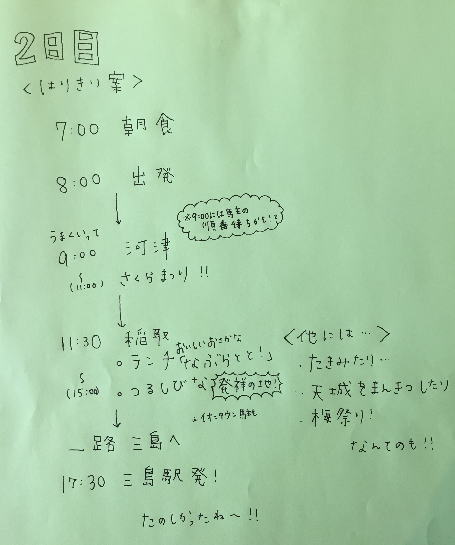 2日目
<はりきり案>
7:00 朝食
8:00 出発
※9:00には馬主の
順番待ちがもして
うまくいって
9:00 河津
(11:00) さくらまつり !!
11:30 稲取
おいしいおさかな
・ランチ「なぶらとと!」
(15:00) ・つるしびな 発祥の地!
イオンタウン
一路 三島へ
17:30 三島駅発!
たのしかったね〜!!
<他には…>
・たきみたり…
・天城をまんきつしたり
・梅祭り!
なんてのも!!